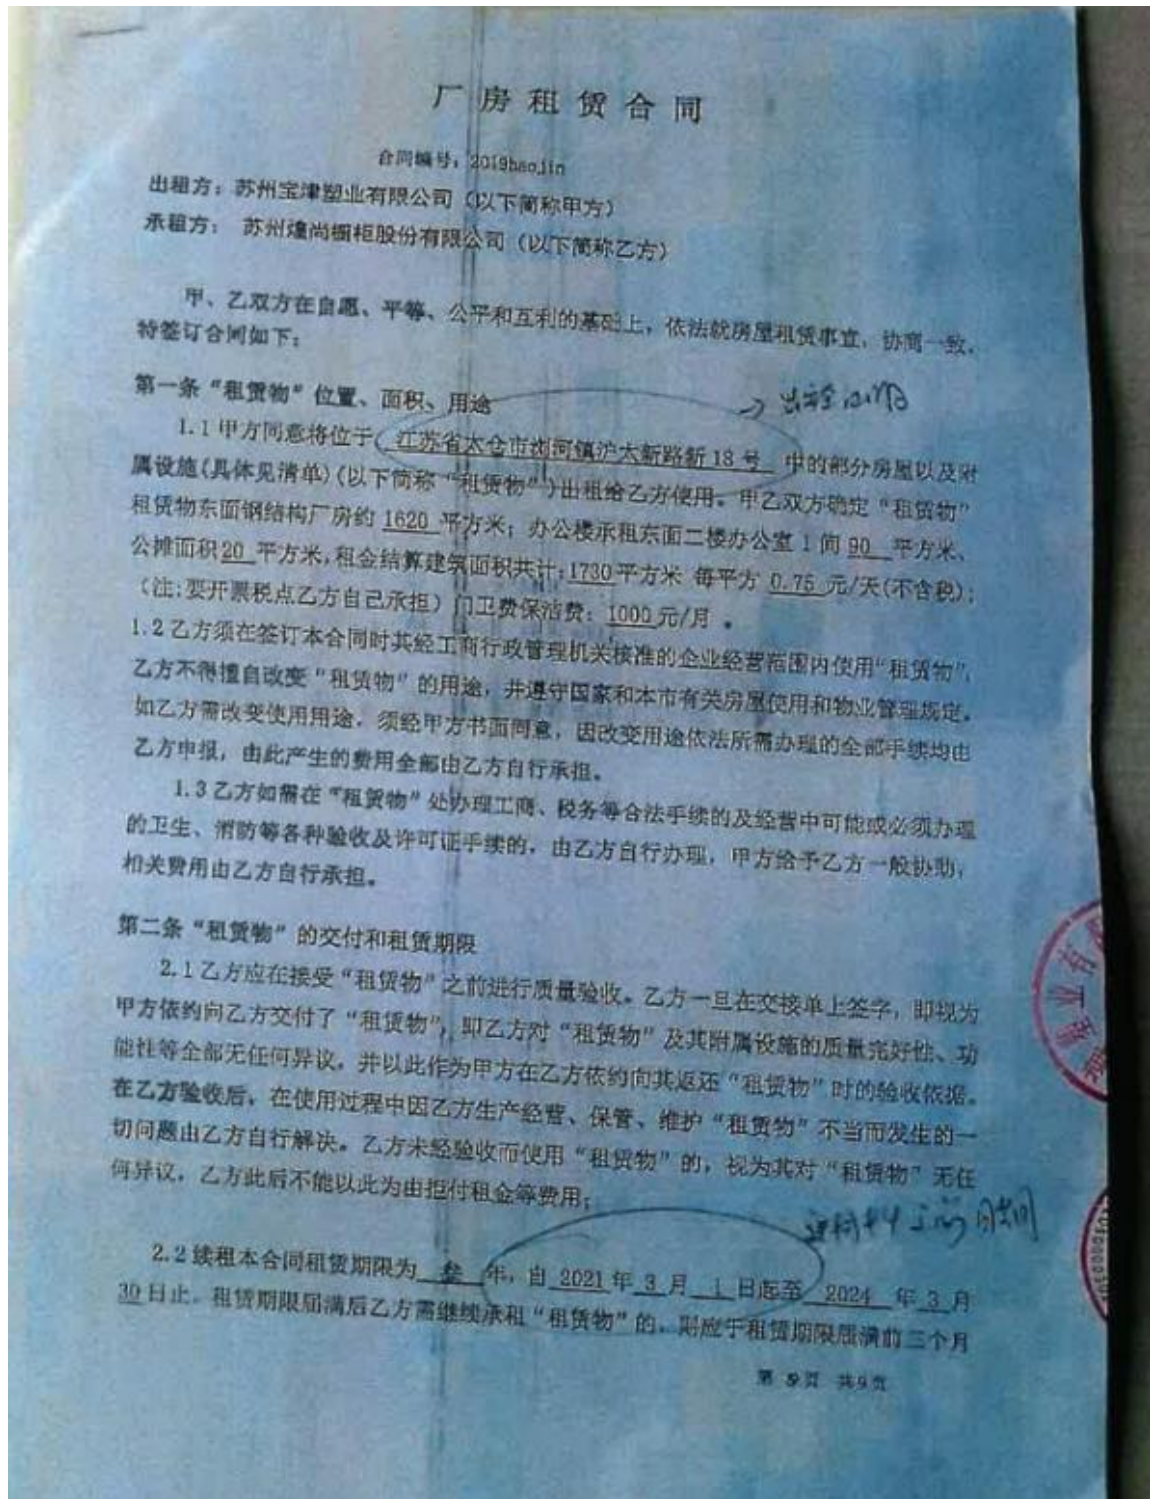 厂房租赁合同
合同编号：2019baojin
出租方：苏州宝津塑业有限公司（以下简称甲方）
承租方： 苏州煌尚橱柜股份有限公司（以下简称乙方）
甲、乙双方在自愿、平等、公平和互利的基础上，依法就房屋租赁事宜，协商一致，
特签订合同如下：
第一条“租赁物”位置、面积、用途
1.1甲方同意将位于 江苏省太仓市浏河镇沪太新路新18号 中的部分房屋以及附
属设施(具体见清单)(以下简称“租赁物”)出租给乙方使用。甲乙双方确定“租赁物”
租赁物东面钢结构厂房约 1620 平方米；办公楼承租东面二楼办公室1间 90 平方米、
公摊面积20 平方米，租金结算建筑面积共计：1730平方米 每平方 0.75 元/天(不含税)；
（注:要开票税点乙方自己承担）门卫费保洁费：1000元/月 。
1.2乙方须在签订本合同时其经工商行政管理机关核准的企业经营范围内使用“租赁物”，
乙方不得擅自改变“租赁物”的用途，并遵守国家和本市有关房屋使用和物业管理规定。
如乙方需改变使用用途，须经甲方书面同意，因改变用途依法所需办理的全部手续均由
乙方申报，由此产生的费用全部由乙方自行承担。
1.3乙方如需在“租赁物”处办理工商、税务等合法手续的及经营中可能或必须办理
的卫生、消防等各种验收及许可证手续的，由乙方自行办理，甲方给予乙方一般协助，
相关费用由乙方自行承担。
第二条“租赁物”的交付和租赁期限
2.1乙方应在接受“租赁物”之前进行质量验收。乙方一旦在交接单上签字，即视为
甲方依约向乙方交付了“租赁物”，即乙方对“租赁物”及其附属设施的质量完好性、功
能性等全部无任何异议，并以此作为甲方在乙方依约向其返还“租赁物”时的验收依据。
在乙方验收后，在使用过程中因乙方生产经营、保管、维护“租赁物”不当而发生的一
切问题由乙方自行解决。乙方未经验收而使用“租赁物”的，视为其对“租赁物”无任
何异议，乙方此后不能以此为由拒付租金等费用；
2.2续租本合同租赁期限为 叁 年，自 2021 年 3 月 1 日起至 2024 年 3 月
30日止。租赁期限届满后乙方需继续承租“租赁物”的，则应于租赁期限届满前三个月
共9页
塑业有